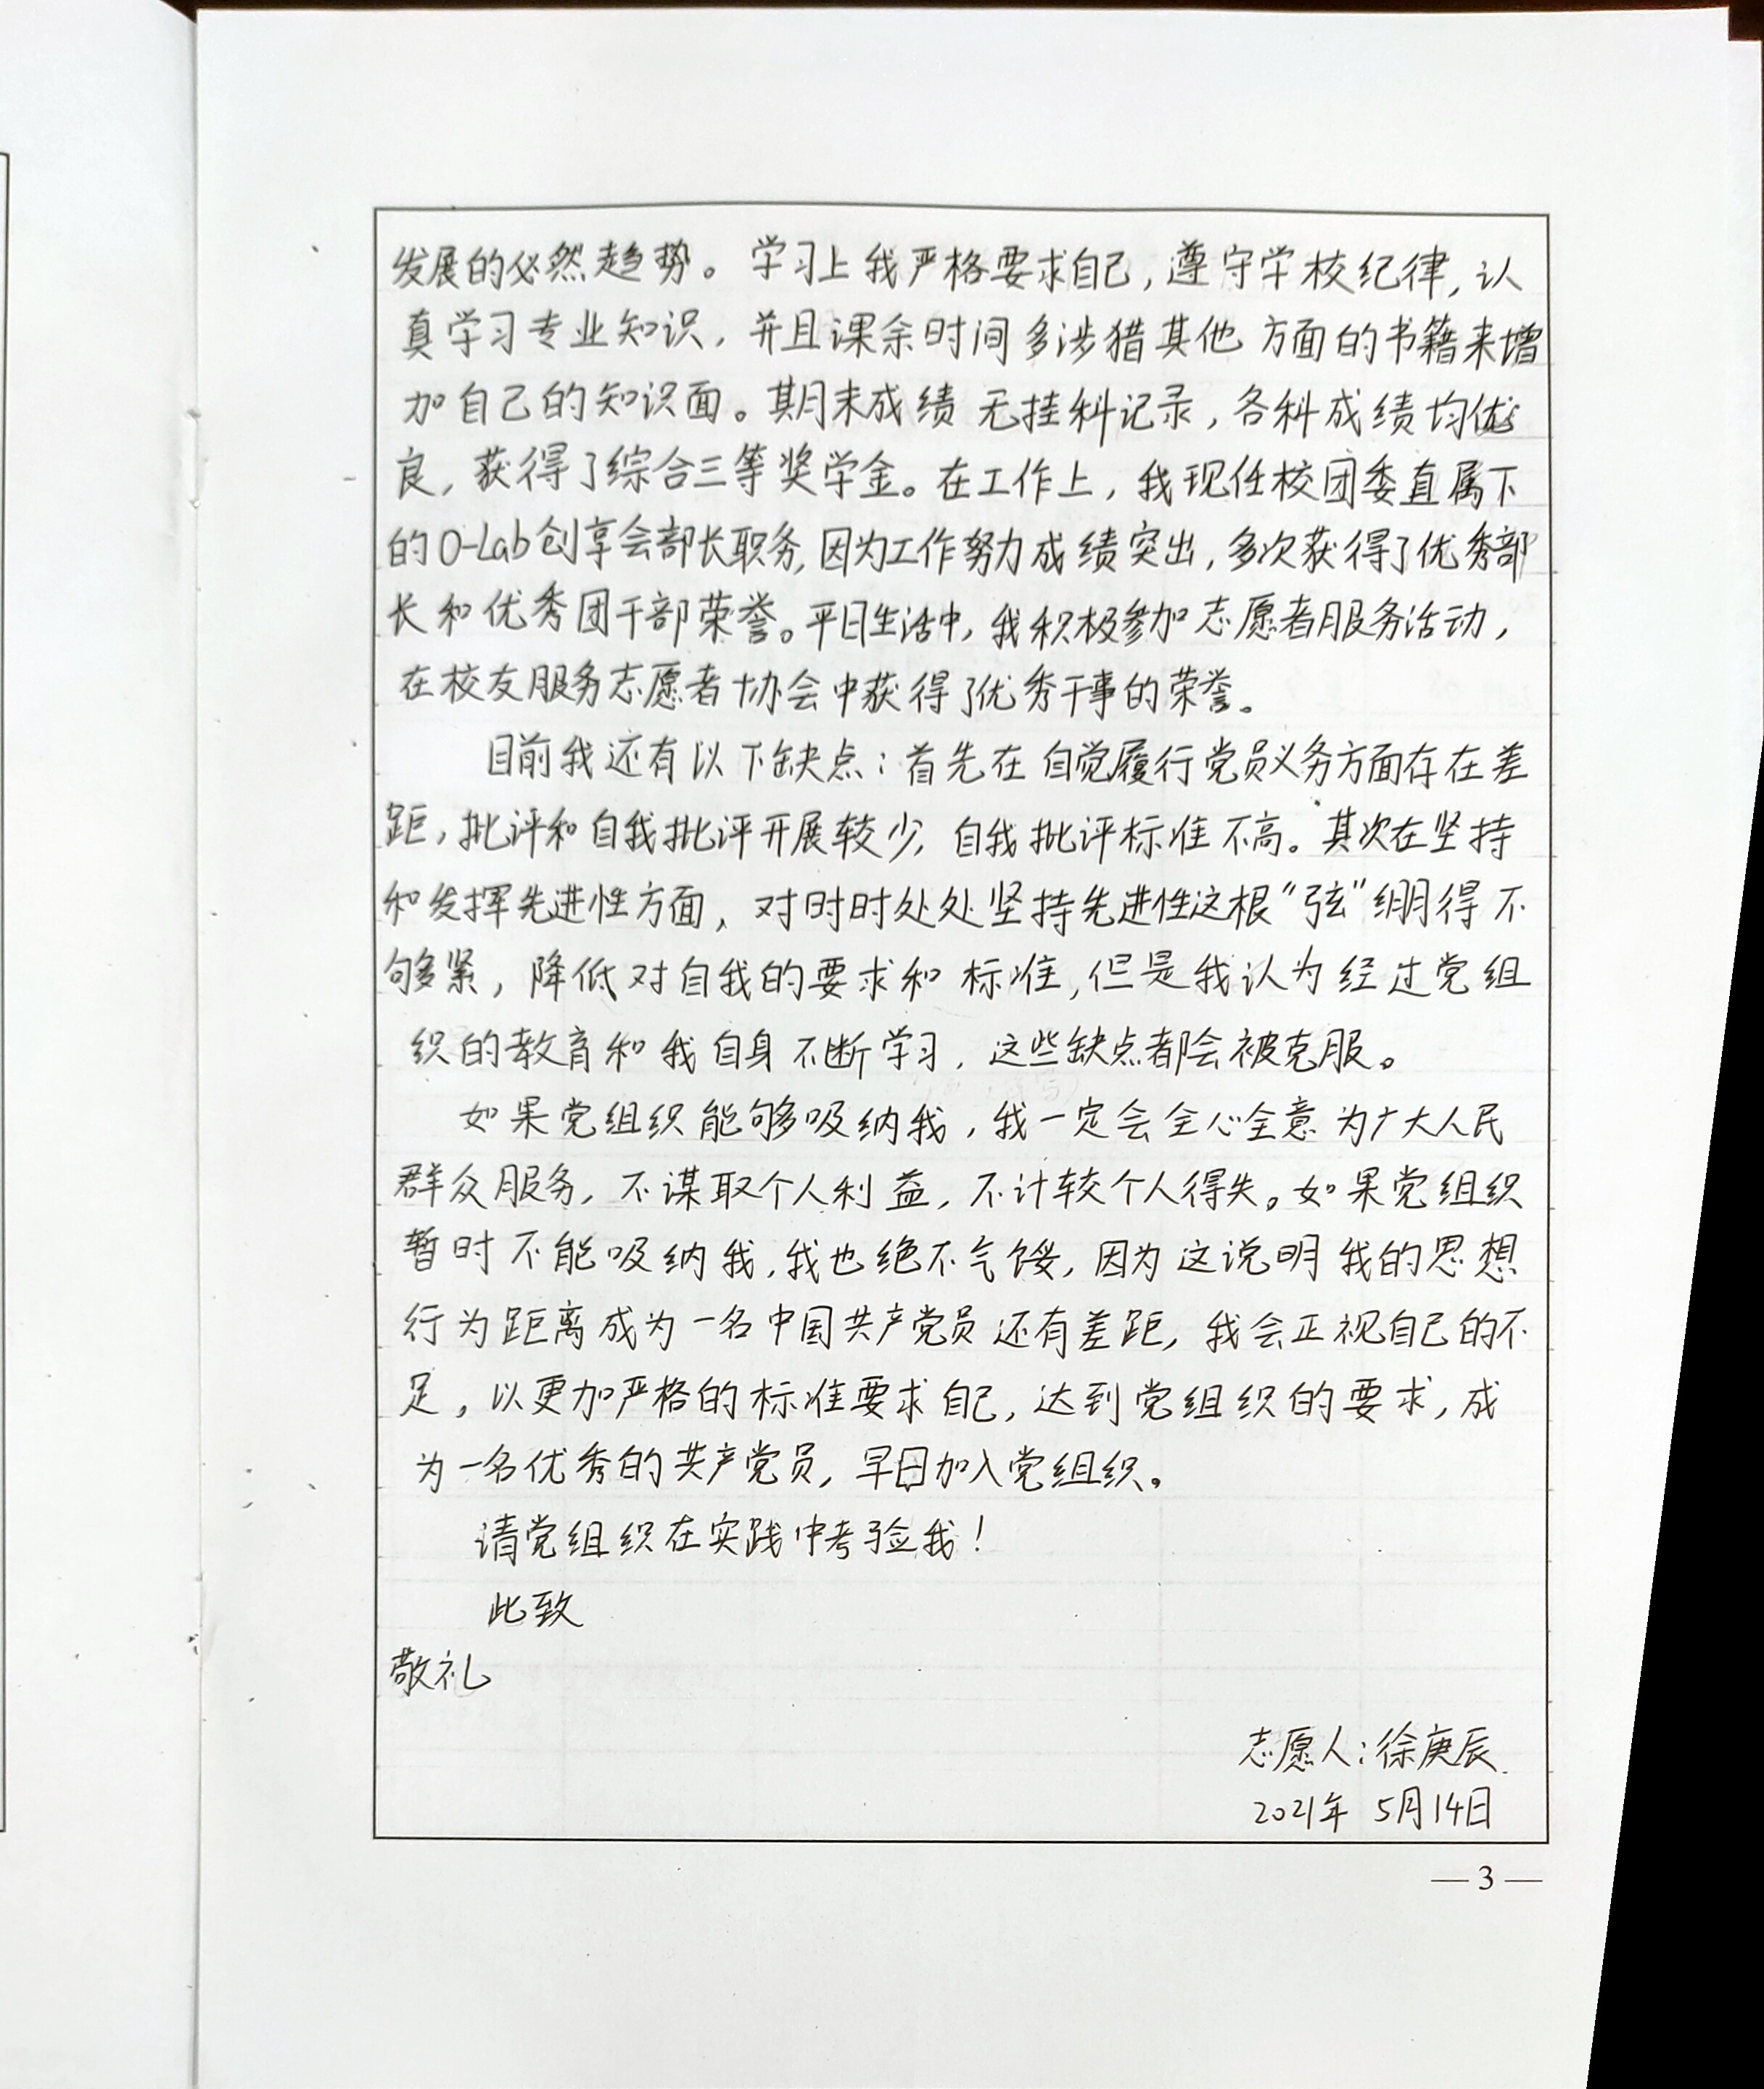 发展的必然趋势。学习上我严格要求自己,遵守学校纪律,认
真学习专业知识,并且课余时间多涉猎其他方面的书籍来增
加自己的知识面。期末成绩无挂科记录,各科成绩均优
良,获得了综合三等奖学金。在工作上,我现任校团委直属下
的O-Lab创享会部长职务,因为工作努力成绩突出,多次获得了优秀部
长和优秀团干部荣誉。平日生活中,我积极参加志愿者服务活动,
在校友服务志愿者协会中获得了优秀干事的荣誉。
目前我还有以下缺点:首先在自觉履行党员义务方面存在差
距,批评和自我批评开展较少,自我批评标准不高。其次在坚持
和发挥先进性方面,对时时处处坚持先进性这根“弦”绷得不
够紧,降低对自我的要求和标准,但是我认为经过党组
织的教育和我自身不断学习,这些缺点都会被克服。
如果党组织能够吸纳我,我一定会全心全意为广大人民
群众服务,不谋取个人利益,不计较个人得失。如果党组织
暂时不能吸纳我,我也绝不气馁,因为这说明我的思想
行为距离成为一名中国共产党员还有差距,我会正视自己的不
足,以更加严格的标准要求自己,达到党组织的要求,成
为一名优秀的共产党员,早日加入党组织。
请党组织在实践中考验我!
此致
敬礼
志愿人:徐庚辰
2021年 5月14日
— 3 —